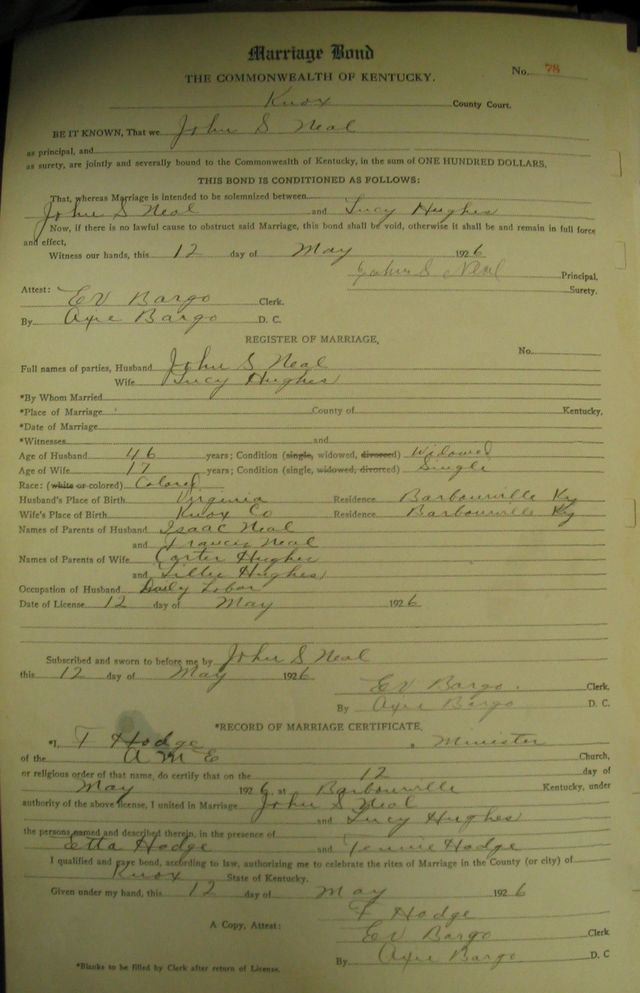 Marriage Bond
No. 78
THE COMMONWEALTH OF KENTUCKY.
Knox County Court.
BE IT KNOWN, That we John S Neal
as principal, and
as surety, are jointly and severally bound to the Commonwealth of Kentucky, in the sum of ONE HUNDRED DOLLARS,
THIS BOND IS CONDITIONED AS FOLLOWS:
That, whereas Marriage is intended to be solemnized between
John S Neal and Lucy Hughes
Now, if there is no lawful cause to obstruct said Marriage, this bond shall be void, otherwise it shall be and remain in full force
and effect,
Witness our hands, this 12 day of May 1926
John S Neal Principal,
Surety.
Attest: EV Bargo Clerk.
By Axie Bargo D. C.
REGISTER OF MARRIAGE,
No.
Full names of parties, Husband John S Neal
Wife Lucy Hughes
*By Whom Married
*Place of Marriage County of Kentucky,
*Date of Marriage
*Witnesses and
Age of Husband 46 years; Condition (single, widowed, divorced) Widowed
Age of Wife 17 years; Condition (single, widowed, divorced) Single
Race: (white or colored) Colored
Husband's Place of Birth Virginia Residence Barbourville Ky
Wife's Place of Birth Knox Co Residence Barbourville Ky
Names of Parents of Husband Isaac Neal
and Francis Neal
Names of Parents of Wife Carter Hughes
and Lillie Hughes
Occupation of Husband Daily Labor
Date of License 12 day of May 1926
Subscribed and sworn to before me by John S Neal
this 12 day of May 1926
EV Bargo. Clerk,
By Axie Bargo D. C.
*RECORD OF MARRIAGE CERTIFICATE,
*I, F Hodge, Minister
of the A M E Church,
or religious order of that name, do certify that on the 12 day of
May 1926, at Barbourville Kentucky, under
authority of the above license, I united in Marriage John S Neal
and Lucy Hughes
the persons named and described therein, in the presence of
Etta Hodge and Tennie Hodge
I qualified and gave bond, according to law, authorizing me to celebrate the rites of Marriage in the County (or city) of
Knox State of Kentucky.
Given under my hand, this 12 day of May 1926
F Hodge
A Copy, Attest: EV Bargo Clerk
By Axie Bargo D. C
*Blanks to be filled by Clerk after return of License.